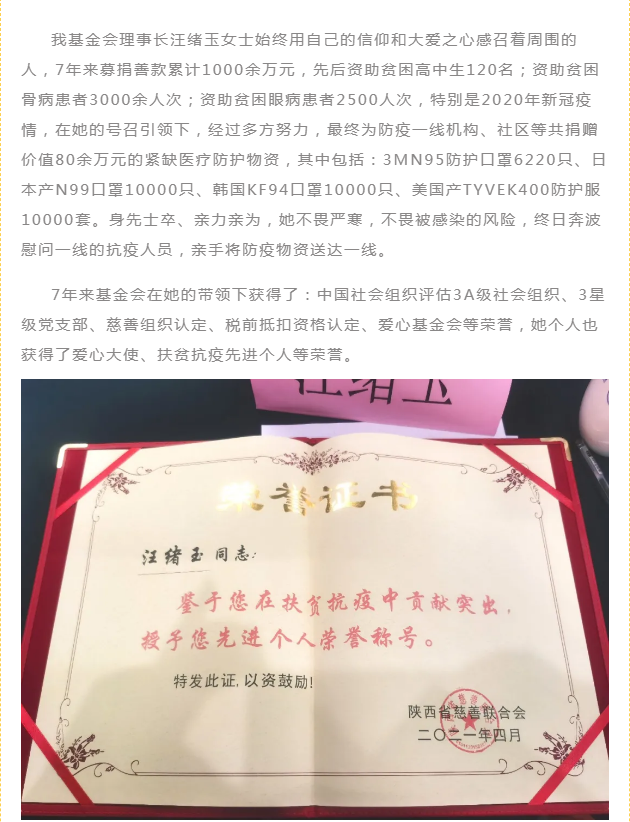 我基金会理事长汪绪玉女士始终用自己的信仰和大爱之心感召着周围的
人，7年来募捐善款累计1000余万元，先后资助贫困高中生120名；资助贫困
骨病患者3000余人次；资助贫困眼病患者2500人次，特别是2020年新冠疫
情，在她的号召引领下，经过多方努力，最终为防疫一线机构、社区等共捐赠
价值80余万元的紧缺医疗防护物资，其中包括：3MN95防护口罩6220只、日
本产N99口罩10000只、韩国KF94口罩10000只、美国产TYVEK400防护服
10000套。身先士卒、亲力亲为，她不畏严寒，不畏被感染的风险，终日奔波
慰问一线的抗疫人员，亲手将防疫物资送达一线。
7年来基金会在她的带领下获得了：中国社会组织评估3A级社会组织、3星
级党支部、慈善组织认定、税前抵扣资格认定、爱心基金会等荣誉，她个人也
获得了爱心大使、扶贫抗疫先进个人等荣誉。
汪绪玉
荣誉证书
汪绪玉同志：
鉴于您在扶贫抗疫中贡献突出，
授予您先进个人荣誉称号。
特发此证，以资鼓励！
陕西省慈善联合会
二〇二一年四月